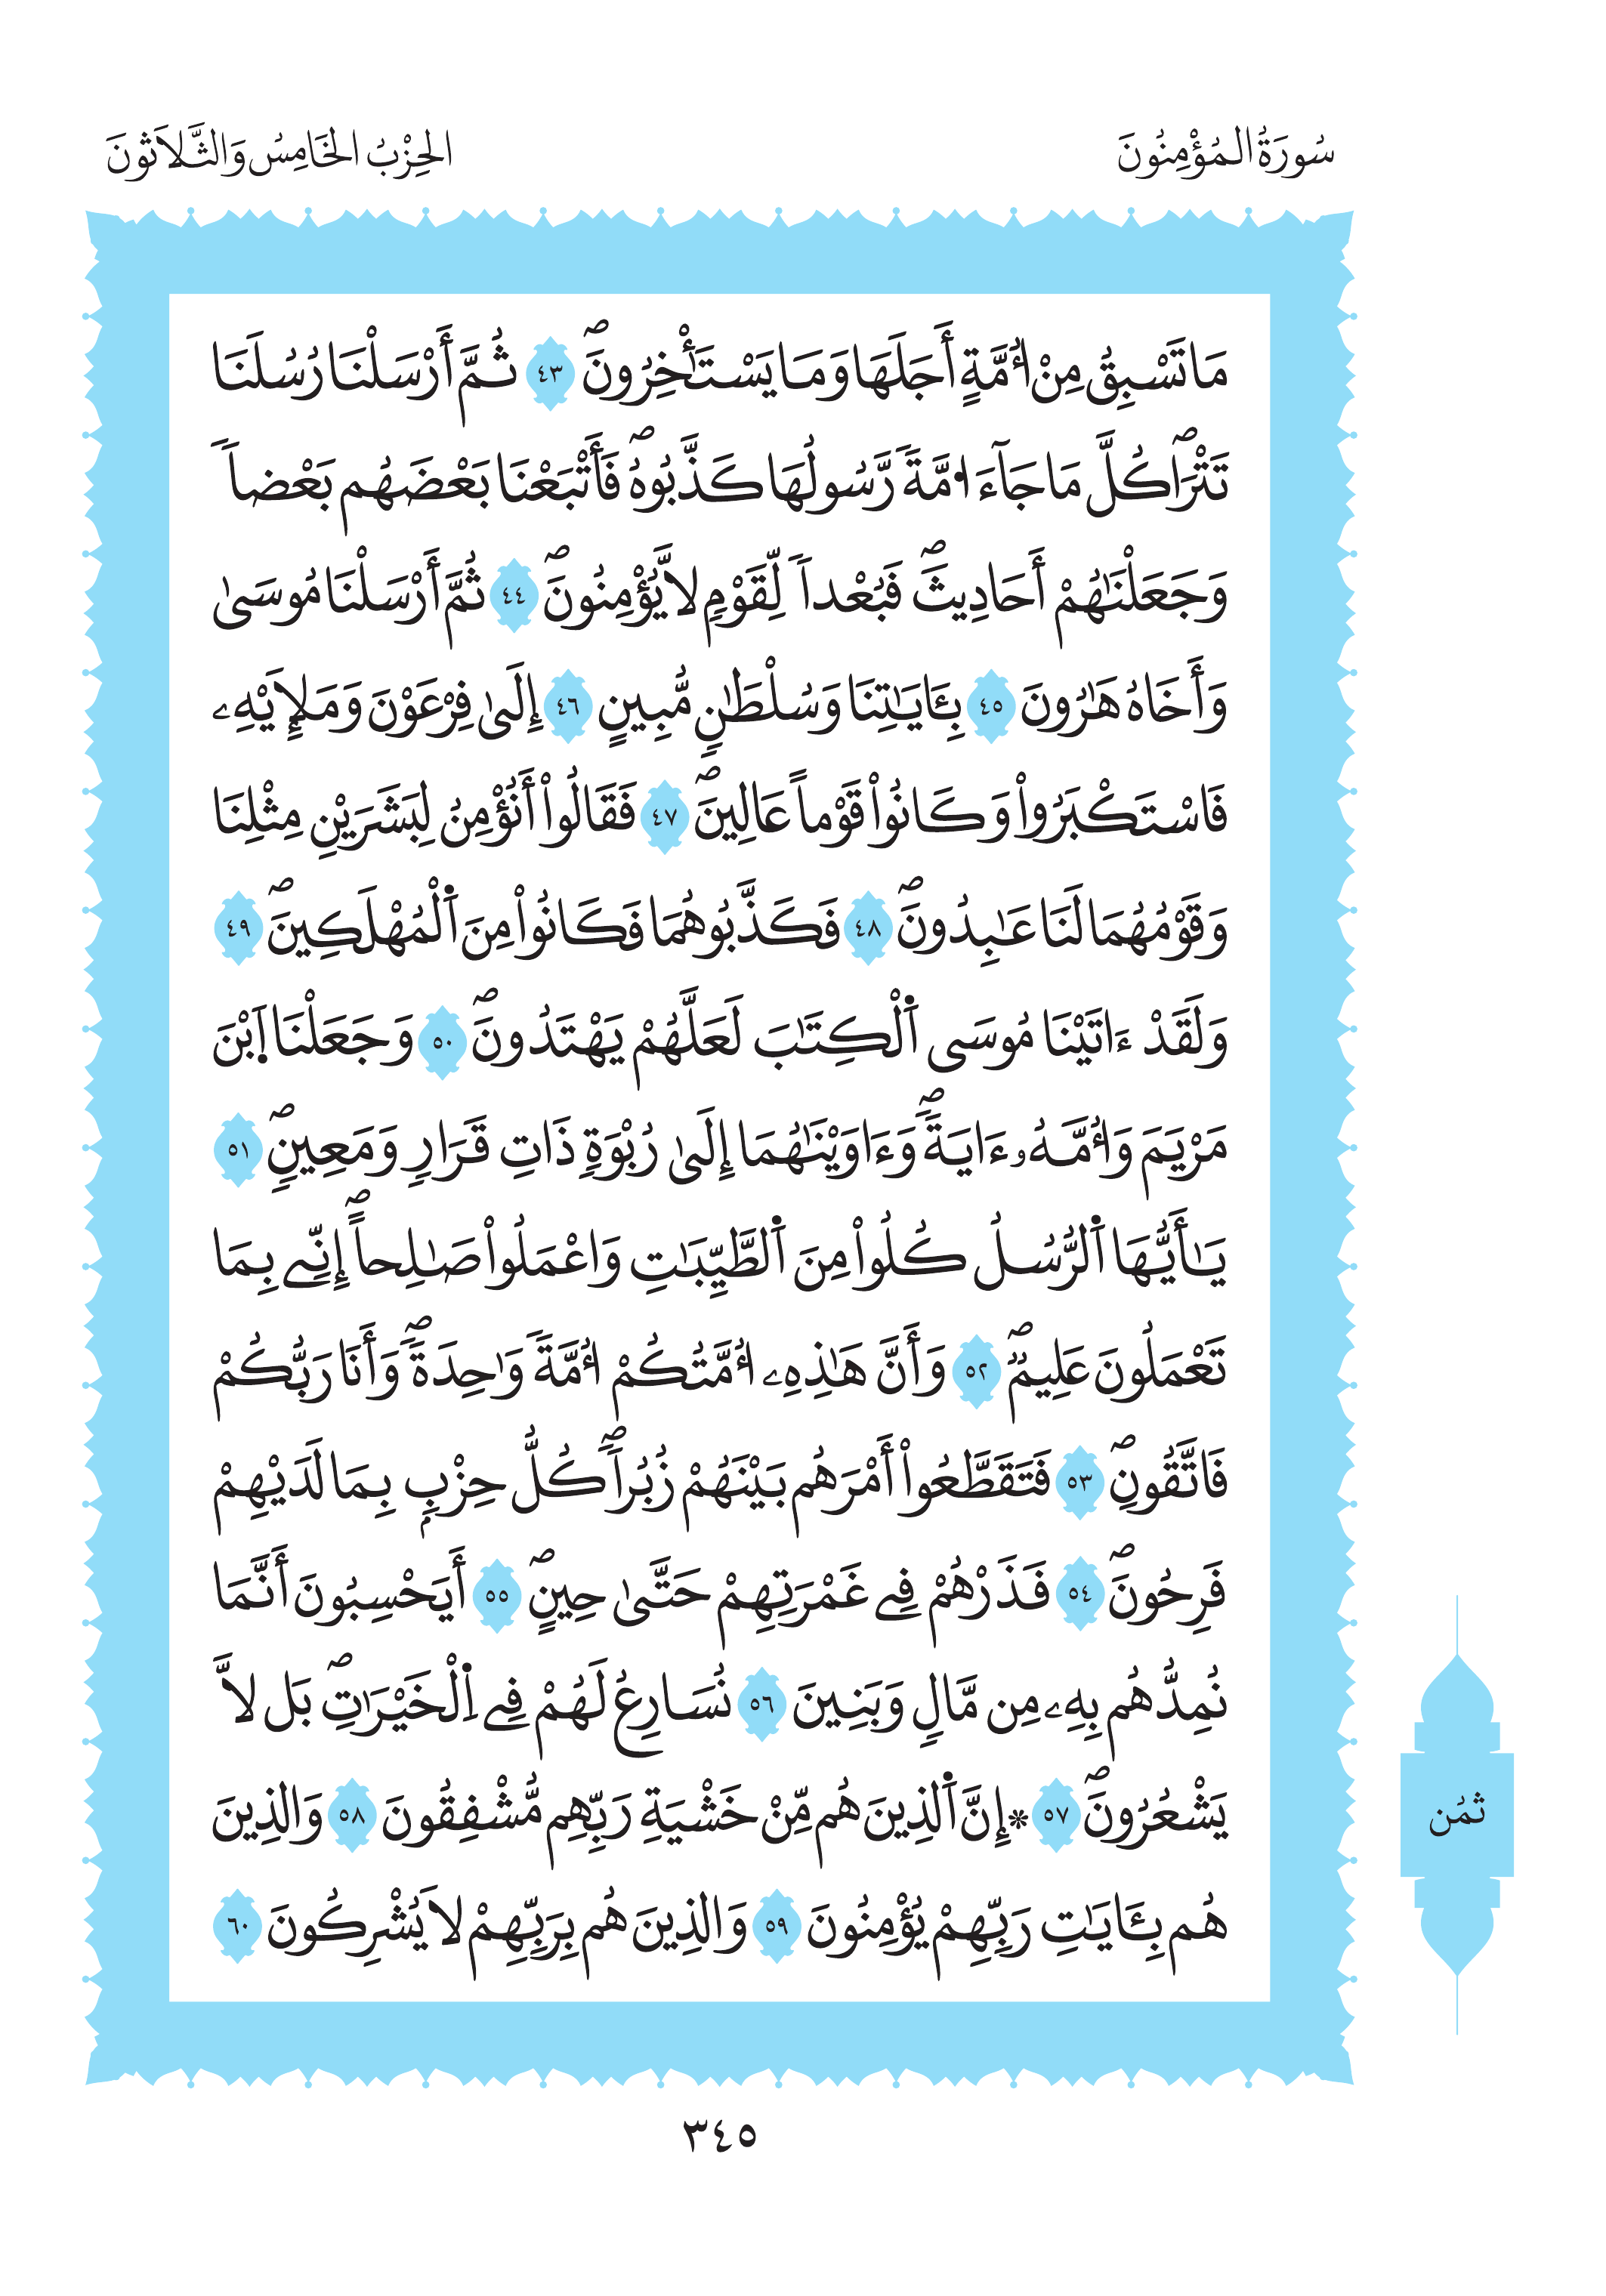 سُورَةُ الْمُؤْمِنُونَ
الحِزْبُ الخَامِسُ وَالثَّلَاثُونَ
مَا تَسْبِقُ مِنْ أُمَّةٍ أَجَلَهَا وَمَا يَسْتَـٔۡخِرُونَۖ ٤٣ ثُمَّ أَرْسَلْنَا رُسُلَنَا
تَتْرَاۖ كُلَّ مَا جَآءَ ا۟مَّةٗ رَّسُولُهَا كَذَّبُوهُۖ فَأَتْبَعْنَا بَعْضَهُم بَعْضاٗ
وَجَعَلْنَٰهُمْ أَحَادِيثَۖ فَبُعْداٗ لِّقَوْمٖ لَّا يُؤْمِنُونَۖ ٤٤ ثُمَّ أَرْسَلْنَا مُوسَىٰ
وَأَخَاهُ هَٰرُونَ ٤٥ بِـَٔايَٰتِنَا وَسُلْطَٰنٖ مُّبِينٍ ٤٦ إِلَىٰ فِرْعَوْنَ وَمَلَإِيْهِۦ
فَاسْتَكْبَرُواْ وَكَانُواْ قَوْماً عَالِينَۖ ٤٧ فَقَالُواْ أَنُؤْمِنُ لِبَشَرَيْنِ مِثْلِنَا
وَقَوْمُهُمَا لَنَا عَٰبِدُونَۖ ٤٨ فَكَذَّبُوهُمَا فَكَانُواْ مِنَ اَ۬لْمُهْلَكِينَۖ ٤٩
وَلَقَدْ ءَاتَيْنَا مُوسَى اَ۬لْكِتَٰبَ لَعَلَّهُمْ يَهْتَدُونَۖ ٥٠ وَجَعَلْنَا اَ۪بْنَ
مَرْيَمَ وَأُمَّهُۥ ءَايَةٗۖ وَءَاوَيْنَٰهُمَا إِلَىٰ رُبْوَةٖ ذَاتِ قَرَارٖ وَمَعِينٖۖ ٥١
يَٰأَيُّهَا اَ۬لرُّسُلُ كُلُواْ مِنَ اَ۬لطَّيِّبَٰتِ وَاعْمَلُواْ صَٰلِحاًۖ إِنِّے بِمَا
تَعْمَلُونَ عَلِيمٞۖ ٥٢ وَأَنَّ هَٰذِهِۦ أُمَّتُكُمْ أُمَّةٗ وَٰحِدَةٗۖ وَأَنَا رَبُّكُمْ
فَاتَّقُونِۖ ٥٣ فَتَقَطَّعُواْ أَمْرَهُم بَيْنَهُمْ زُبُراٗۖ كُلُّ حِزْبِۢ بِمَا لَدَيْهِمْ
فَرِحُونَۖ ٥٤ فَذَرْهُمْ فِے غَمْرَتِهِمْ حَتَّىٰ حِينٍۖ ٥٥ أَيَحْسِبُونَ أَنَّمَا
نُمِدُّهُم بِهِۦ مِن مَّالٖ وَبَنِينَ ٥٦ نُسَارِعُ لَهُمْ فِے اِ۬لْخَيْرَٰتِۖ بَل لَّا
يَشْعُرُونَۖ ٥٧ *إِنَّ اَ۬لذِينَ هُم مِّنْ خَشْيَةِ رَبِّهِم مُّشْفِقُونَ ٥٨ وَالذِينَ
هُم بِـَٔايَٰتِ رَبِّهِمْ يُؤْمِنُونَ ٥٩ وَالذِينَ هُم بِرَبِّهِمْ لَا يُشْرِكُونَ ٦٠
ثمُن
٣٤٥